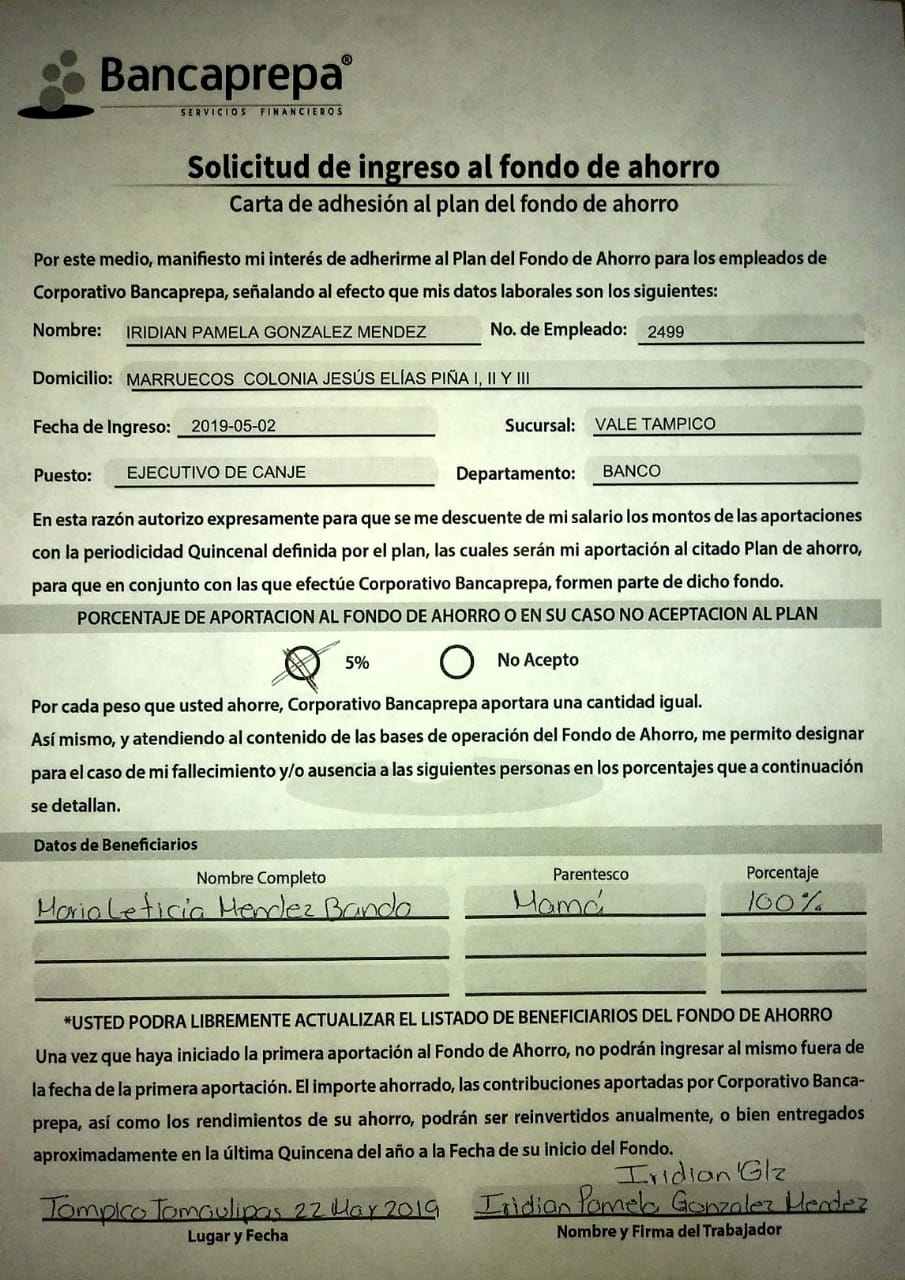 Bancaprepa®
SERVICIOS FINANCIEROS
Solicitud de ingreso al fondo de ahorro
Carta de adhesión al plan del fondo de ahorro
Por este medio, manifiesto mi interés de adherirme al Plan del Fondo de Ahorro para los empleados de
Corporativo Bancaprepa, señalando al efecto que mis datos laborales son los siguientes:
Nombre: IRIDIAN PAMELA GONZALEZ MENDEZ No. de Empleado: 2499
Domicilio: MARRUECOS COLONIA JESÚS ELÍAS PIÑA I, II Y III
Fecha de Ingreso: 2019-05-02 Sucursal: VALE TAMPICO
Puesto: EJECUTIVO DE CANJE Departamento: BANCO
En esta razón autorizo expresamente para que se me descuente de mi salario los montos de las aportaciones
con la periodicidad Quincenal definida por el plan, las cuales serán mi aportación al citado Plan de ahorro,
para que en conjunto con las que efectúe Corporativo Bancaprepa, formen parte de dicho fondo.
PORCENTAJE DE APORTACION AL FONDO DE AHORRO O EN SU CASO NO ACEPTACION AL PLAN
5% No Acepto
Por cada peso que usted ahorre, Corporativo Bancaprepa aportara una cantidad igual.
Así mismo, y atendiendo al contenido de las bases de operación del Fondo de Ahorro, me permito designar
para el caso de mi fallecimiento y/o ausencia a las siguientes personas en los porcentajes que a continuación
se detallan.
Datos de Beneficiarios
Nombre Completo Parentesco Porcentaje
Maria Leticia Mendez Banda Mamá 100%
*USTED PODRA LIBREMENTE ACTUALIZAR EL LISTADO DE BENEFICIARIOS DEL FONDO DE AHORRO
Una vez que haya iniciado la primera aportación al Fondo de Ahorro, no podrán ingresar al mismo fuera de
la fecha de la primera aportación. El importe ahorrado, las contribuciones aportadas por Corporativo Banca-
prepa, así como los rendimientos de su ahorro, podrán ser reinvertidos anualmente, o bien entregados
aproximadamente en la última Quincena del año a la Fecha de su inicio del Fondo.
Iridian Glz
Tampico Tamaulipas 22 May 2019 Iridian Pamela Gonzalez Mendez
Lugar y Fecha Nombre y Firma del Trabajador